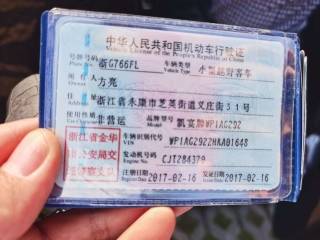 中华人民共和国机动车行驶证
Vehicle License of the People's Republic of China
号牌号码 Plate No. 浙G766FL 车辆类型 Vehicle Type 小型越野客车
所有人 Owner 方亮
住址 Address 浙江省永康市芝英街道义庄街31号
使用性质 Use Character 非营运 品牌型号 Model 凯宴牌WP1AG292
浙江省金华
市公安局交
通警察支队
车辆识别代号 VIN WP1AG2922HKA01648
发动机号码 Engine No. CJT284379
注册日期 Register Date 2017-02-16 发证日期 Issue Date 2017-02-16